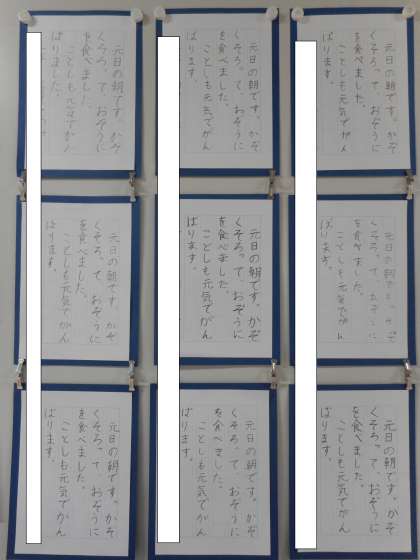 元日の朝です。かぞ
くそろって、おぞうに
を食べました。
ことしも元気でがん
ばります。
元日の朝です。かぞ
くそろって、おぞうに
を食べました。
ことしも元気でがん
ばります。
元日の朝です。かぞ
くそろって、おぞうに
を食べました。
ことしも元気でがん
ばりました。
元日の朝です。かぞ
くそろって、おぞうに
を食べました。
ことしも元気でがん
ばります。
元日の朝です。かぞ
くそろって、おぞうに
を食べました。
ことしも元気でがん
ばります。
元日の朝です。かぞ
くそろって、おぞうに
を食べました。
ことしも元気でがん
ばります。
元日の朝です。かぞ
くそろって、おぞうに
を食べました。
ことしも元気でがん
ばります。
元日の朝です。かぞ
くそろって、おぞうに
を食べました。
ことしも元気でがん
ばります。
元日の朝です。かぞ
くそろって、おぞうに
を食べました。
ことしも元気でがん
ばります。